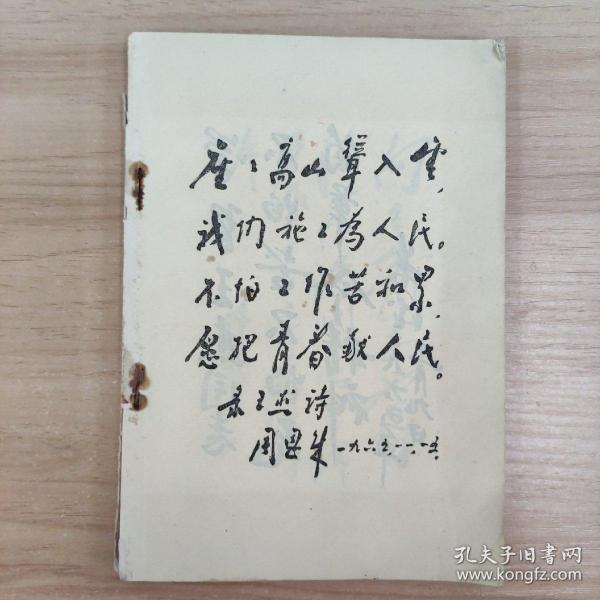 座〻高山耸入雲，
我们施工為人民。
不怕工作苦和累，
愿把青春献人民。
录王杰诗
周恩来 一九六五·一一·一五
孔夫子旧书网
www.kongfz.com